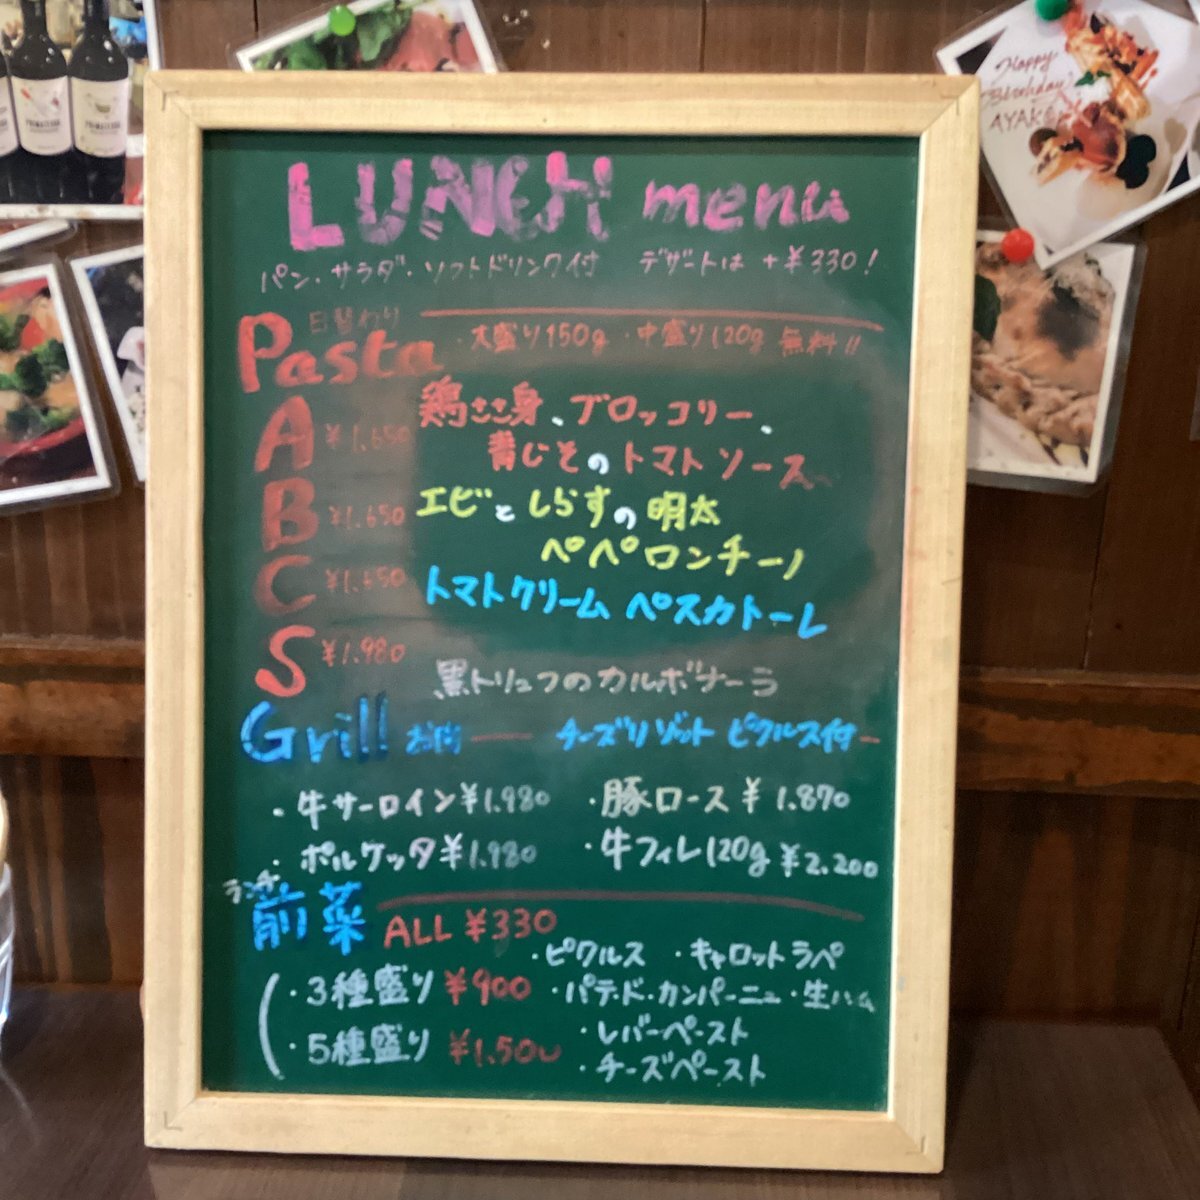 Happy Birthday
AYAKO
LUNCH menu
パン・サラダ・ソフトドリンク付 デザートは +¥330!
日替わり
Pasta ・大盛り150g ・中盛り120g 無料!!
A ¥1.650 鶏ささ身、ブロッコリー、
青じそのトマトソース
B ¥1.650 エビとしらすの明太
ペペロンチーノ
C ¥1.650 トマトクリーム ペスカトーレ
S ¥1.980 黒トリュフのカルボナーラ
Grill お肉 チーズリゾット ピクルス付
・牛サーロイン¥1.980 ・豚ロース ¥1.870
・ポルケッタ¥1.980 ・牛フィレ120g ¥2.200
ランチ
前菜 ALL ¥330
・ピクルス ・キャロットラペ
・3種盛り ¥900 ・パテ・ド・カンパーニュ ・生ハム
・5種盛り ¥1.500 ・レバーペースト
・チーズペースト